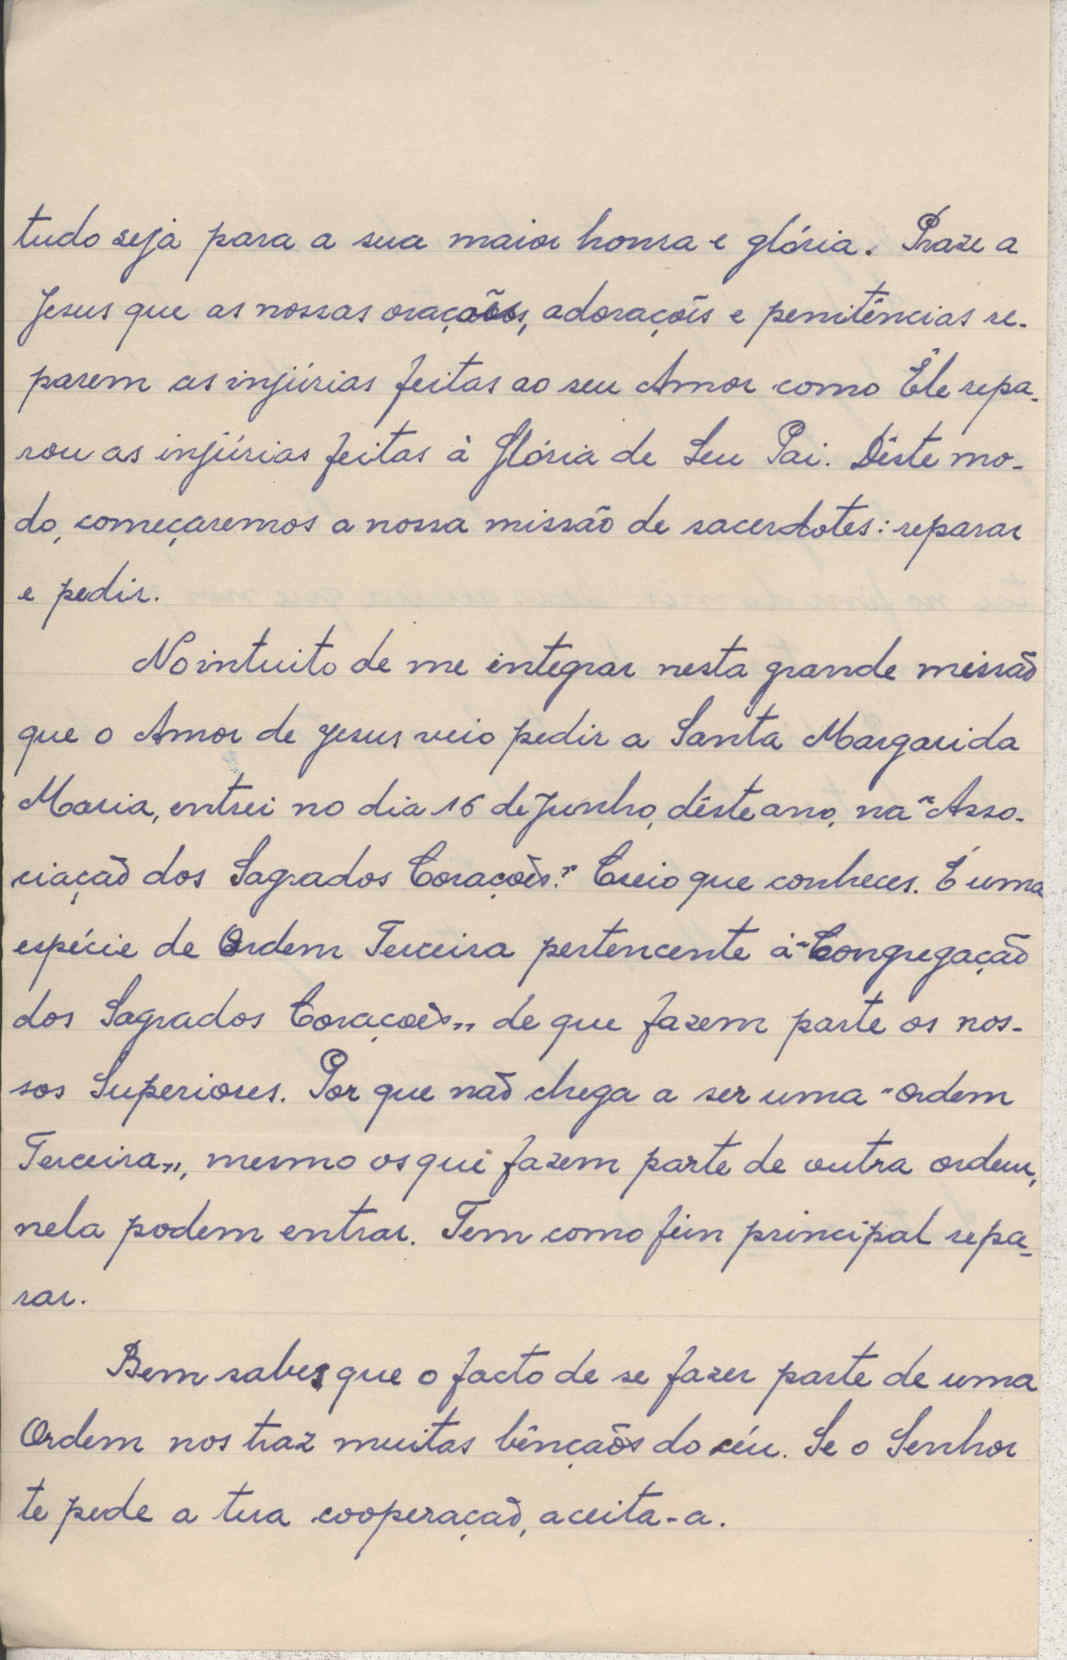 tudo seja para a sua maior honra e glória. Praze a
Jesus que as nossas orações, adorações e penitências re-
parem as injúrias feitas ao seu Amor como Êle repa-
rou as injúrias feitas à Glória de Seu Pai. Dêste mo-
do, começaremos a nossa missão de sacerdotes: reparar
e pedir.
No intuito de me integrar nesta grande missão
que o Amor de Jesus veio pedir a Santa Margarida
Maria, entrei no dia 16 de Junho, dêste ano, na "Asso-
ciação dos Sagrados Corações". Creio que conheces. É uma
espécie de Ordem Terceira pertencente à "Congregação
dos Sagrados Corações„ de que fazem parte os nos-
sos Superiores. Por que não chega a ser uma "Ordem
Terceira„, mesmo os que fazem parte de outra ordem,
nela podem entrar. Tem como fim principal repa-
rar.
Bem sabes que o facto de se fazer parte de uma
Ordem nos traz muitas bênçãos do céu. Se o Senhor
te pede a tua cooperação, aceita-a.